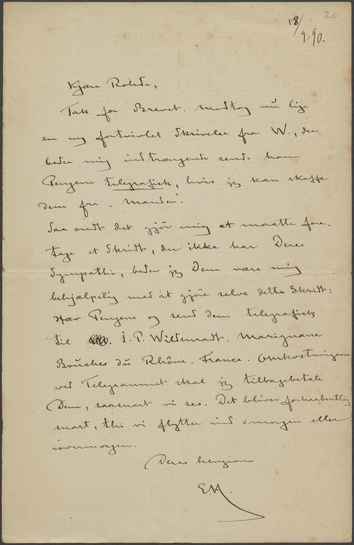 18/9.90.
20
Kjære Rohde,
Tak for Brevet. Modtog nu lige
en ny fortvivlet Skrivelse fra W., der
beder mig indtrængende sende ham
Pengene telegrafisk, hvis jeg kan skaffe
dem før Mandag.
Saa ondt det gjør mig at maatte fore-
tage et Skridt, der ikke har Deres
Sympathi, beder jeg Dem være mig
behjælpelig med at gjøre selve dette Skridt:
Hæv Pengene og send dem telegrafisk
til J. P. Wildenradt. Marignane
Bouches du Rhône. France. Omkostningerne
ved Telegrammet skal jeg tilbagebetale
Dem, saasnart vi ses. Det bliver forhaabentlig
snart, thi vi flytter ind imorgen eller
iovermorgen.
Deres hengivne